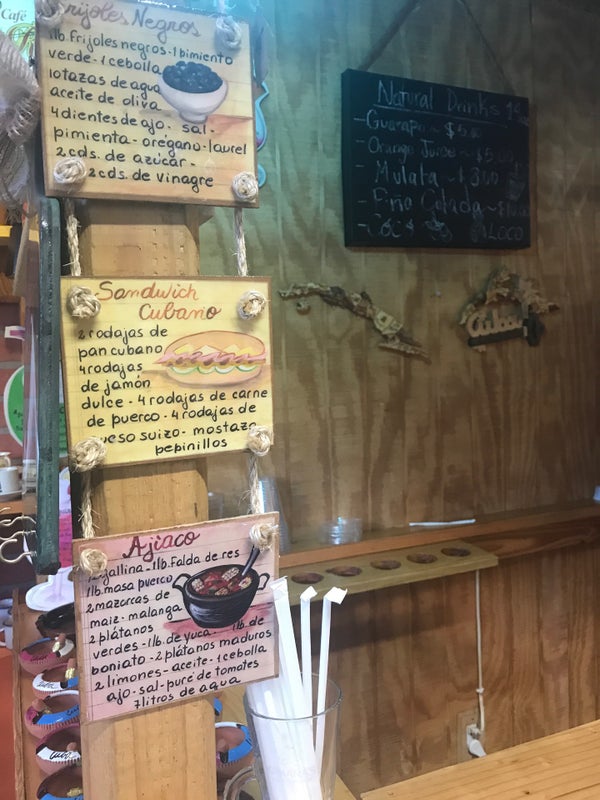 Café
Frijoles Negros
1lb. Frijoles negros - 1 bimiento
verde - 1 cebolla
10 tazas de agua
aceite de oliva
4 dientes de ajo - sal -
pimienta - orégano - laurel
2 cds. de azúcar -
2 cds. de vinagre
Sandwich
Cubano
2 rodajas de
pan cubano
4 rodajas
de jamón
dulce - 4 rodajas de carne
de puerco - 4 rodajas de
queso suizo - mostaza
pepinillos
Ajiaco
gallina - 1lb. Falda de res
1lb. masa puerco
2 mazorcas de
maiz - malanga
2 plátanos
verdes - 1lb. de yuca - 1lb. de
boniato - 2 plátanos maduros
2 limones - aceite - 1 cebolla
ajo - sal - puré de tomates
7 litros de agua
Natural Drinks
- Guarapo ~ $5.00
- Orange Juice ~ $5.00
- Mulata ~ $
- Piña Colada ~ $
LOCO
Cuba